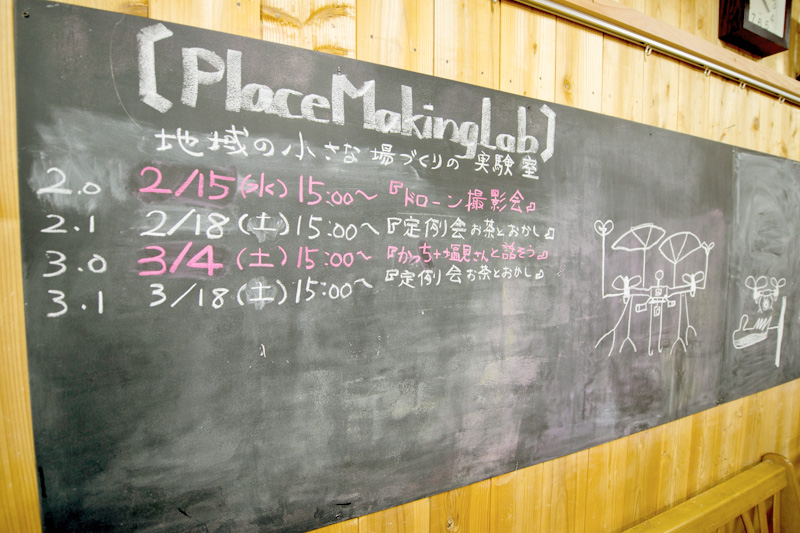 【PlaceMakingLab】
地域の小さな場づくりの実験室
2.0 2/15(水)15:00～『ドローン撮影会』
2.1 2/18(土)15:00～『定例会お茶とおかし』
3.0 3/4(土)15:00～『かっち+塩見さんと話そう』
3.1 3/18(土)15:00～『定例会お茶とおかし』